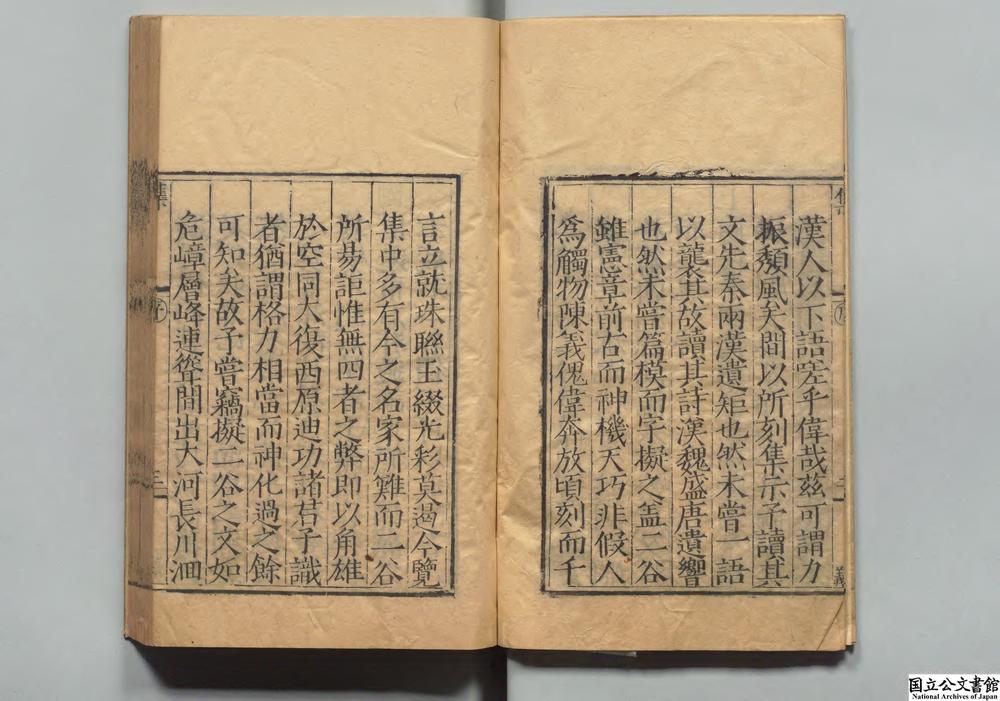 漢人以下語嗟乎偉哉玆可謂力
振頽風矣間以所刻集示予讀其
文先秦兩漢遺矩也然未嘗一語
以襲其故讀其詩漢魏盛唐遺響
也然未嘗篇模而字擬之盖二谷
雖憲章前古而神機天巧非假人
爲觸物陳義傀偉奔放頃刻而千
言立就珠聯玉綴光彩莫遏今覽
集中多有今之名家所難而二谷
所易詎惟無四者之弊即以角雄
於空同大復西原迪功諸君子識
者猶謂格力相當而神化過之餘
可知矣故予嘗竊擬二谷之文如
危嶂層峰連聳間出大河長川洄
集
序
三
國立公文書館
National Archives of Japan